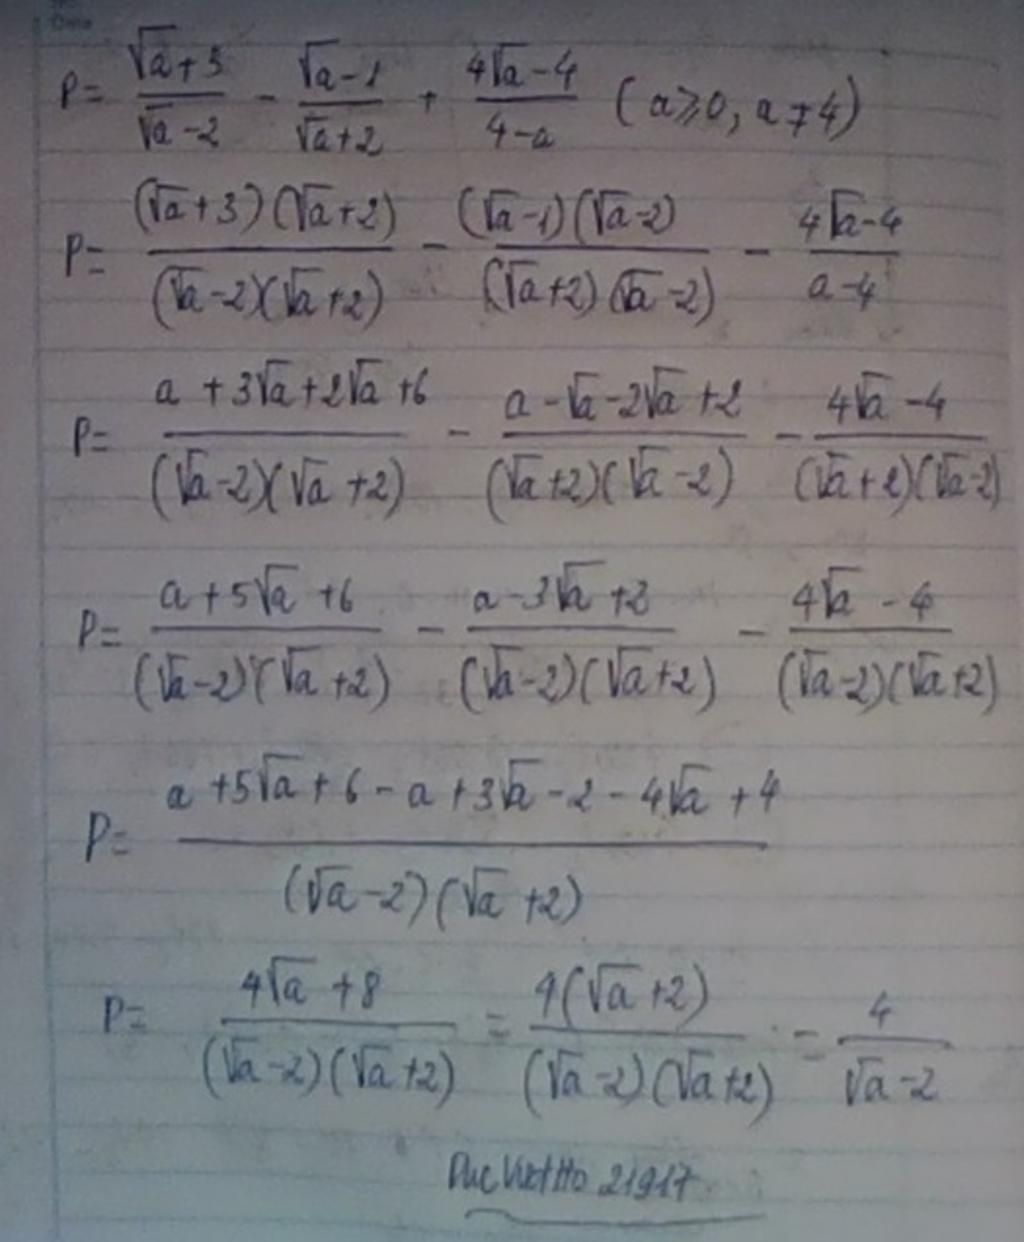 P = \frac{\sqrt{a}+3}{\sqrt{a}-2} - \frac{\sqrt{a}-1}{\sqrt{a}+2} + \frac{4\sqrt{a}-4}{4-a} (a ≥ 0, a ≠ 4)
P = \frac{(\sqrt{a}+3)(\sqrt{a}+2)}{(\sqrt{a}-2)(\sqrt{a}+2)} - \frac{(\sqrt{a}-1)(\sqrt{a}-2)}{(\sqrt{a}+2)(\sqrt{a}-2)} - \frac{4\sqrt{a}-4}{a-4}
P = \frac{a+3\sqrt{a}+2\sqrt{a}+6}{(\sqrt{a}-2)(\sqrt{a}+2)} - \frac{a-\sqrt{a}-2\sqrt{a}+2}{(\sqrt{a}+2)(\sqrt{a}-2)} - \frac{4\sqrt{a}-4}{(\sqrt{a}+2)(\sqrt{a}-2)}
P = \frac{a+5\sqrt{a}+6}{(\sqrt{a}-2)(\sqrt{a}+2)} - \frac{a-3\sqrt{a}+2}{(\sqrt{a}-2)(\sqrt{a}+2)} - \frac{4\sqrt{a}-4}{(\sqrt{a}-2)(\sqrt{a}+2)}
P = \frac{a+5\sqrt{a}+6-a+3\sqrt{a}-2-4\sqrt{a}+4}{(\sqrt{a}-2)(\sqrt{a}+2)}
P = \frac{4\sqrt{a}+8}{(\sqrt{a}-2)(\sqrt{a}+2)} = \frac{4(\sqrt{a}+2)}{(\sqrt{a}-2)(\sqrt{a}+2)} = \frac{4}{\sqrt{a}-2}
21917